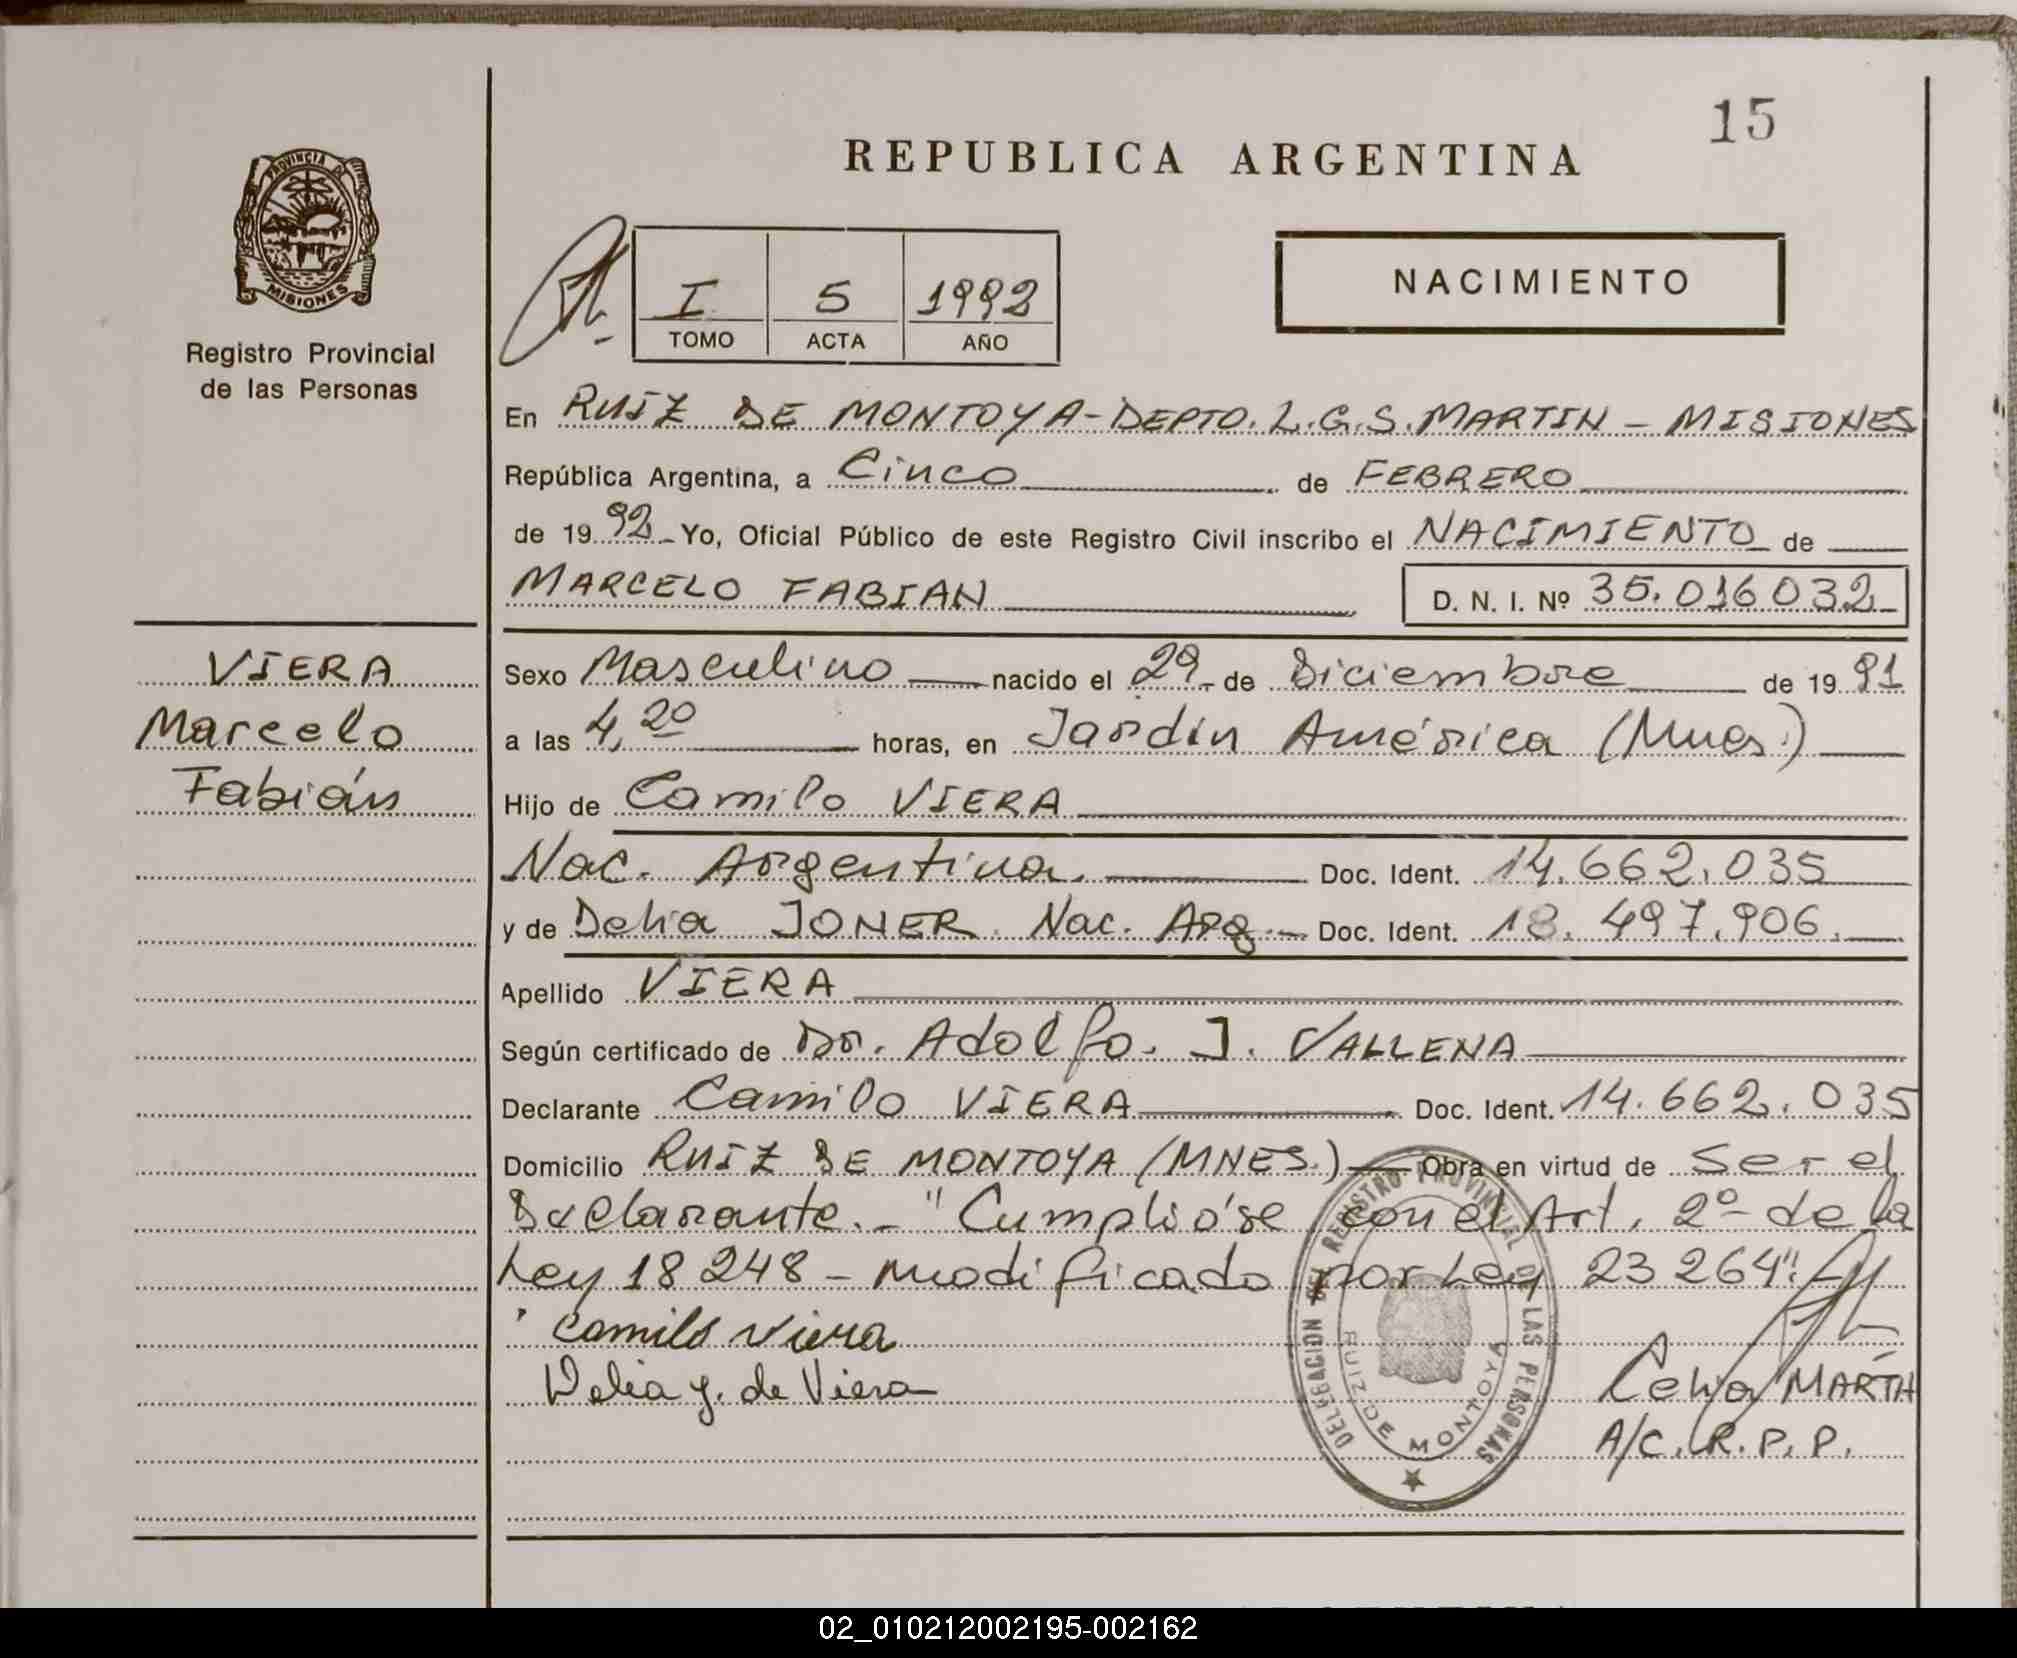 15
REPUBLICA ARGENTINA
PROVINCIA DE
MISIONES
Registro Provincial
de las Personas
I 5 1992
TOMO ACTA AÑO
NACIMIENTO
En RUIZ DE MONTOYA-DEPTO. L.G.S. MARTIN - MISIONES
República Argentina, a Cinco de FEBRERO
de 19 92 Yo, Oficial Público de este Registro Civil inscribo el NACIMIENTO de
MARCELO FABIAN D. N. I. Nº 35.016032
VIERA
Marcelo
Fabián
Sexo Masculino nacido el 29 de Diciembre de 19 91
a las 4,20 horas, en Jardín América (Mnes.)
Hijo de Camilo VIERA
Nac. Argentina. Doc. Ident. 14.662.035
y de Delia JONER Nac. Arg. Doc. Ident. 18.497.906.
Apellido VIERA
Según certificado de Dr. Adolfo. J. VALLENA
Declarante Camilo VIERA Doc. Ident. 14.662.035
Domicilio RUIZ DE MONTOYA (MNES.) Obra en virtud de Ser el
Declarante.- "Cumplióse con el Art. 2º de la
Ley 18248 - modificado por Ley 23264".
Camilo Viera
Delia J. de Viera
Celia MARTH
A/C. R.P.P.
DELEGACION DEL REGISTRO PROVINCIAL DE LAS PERSONAS
RUIZ DE MONTOYA
02_010212002195-002162